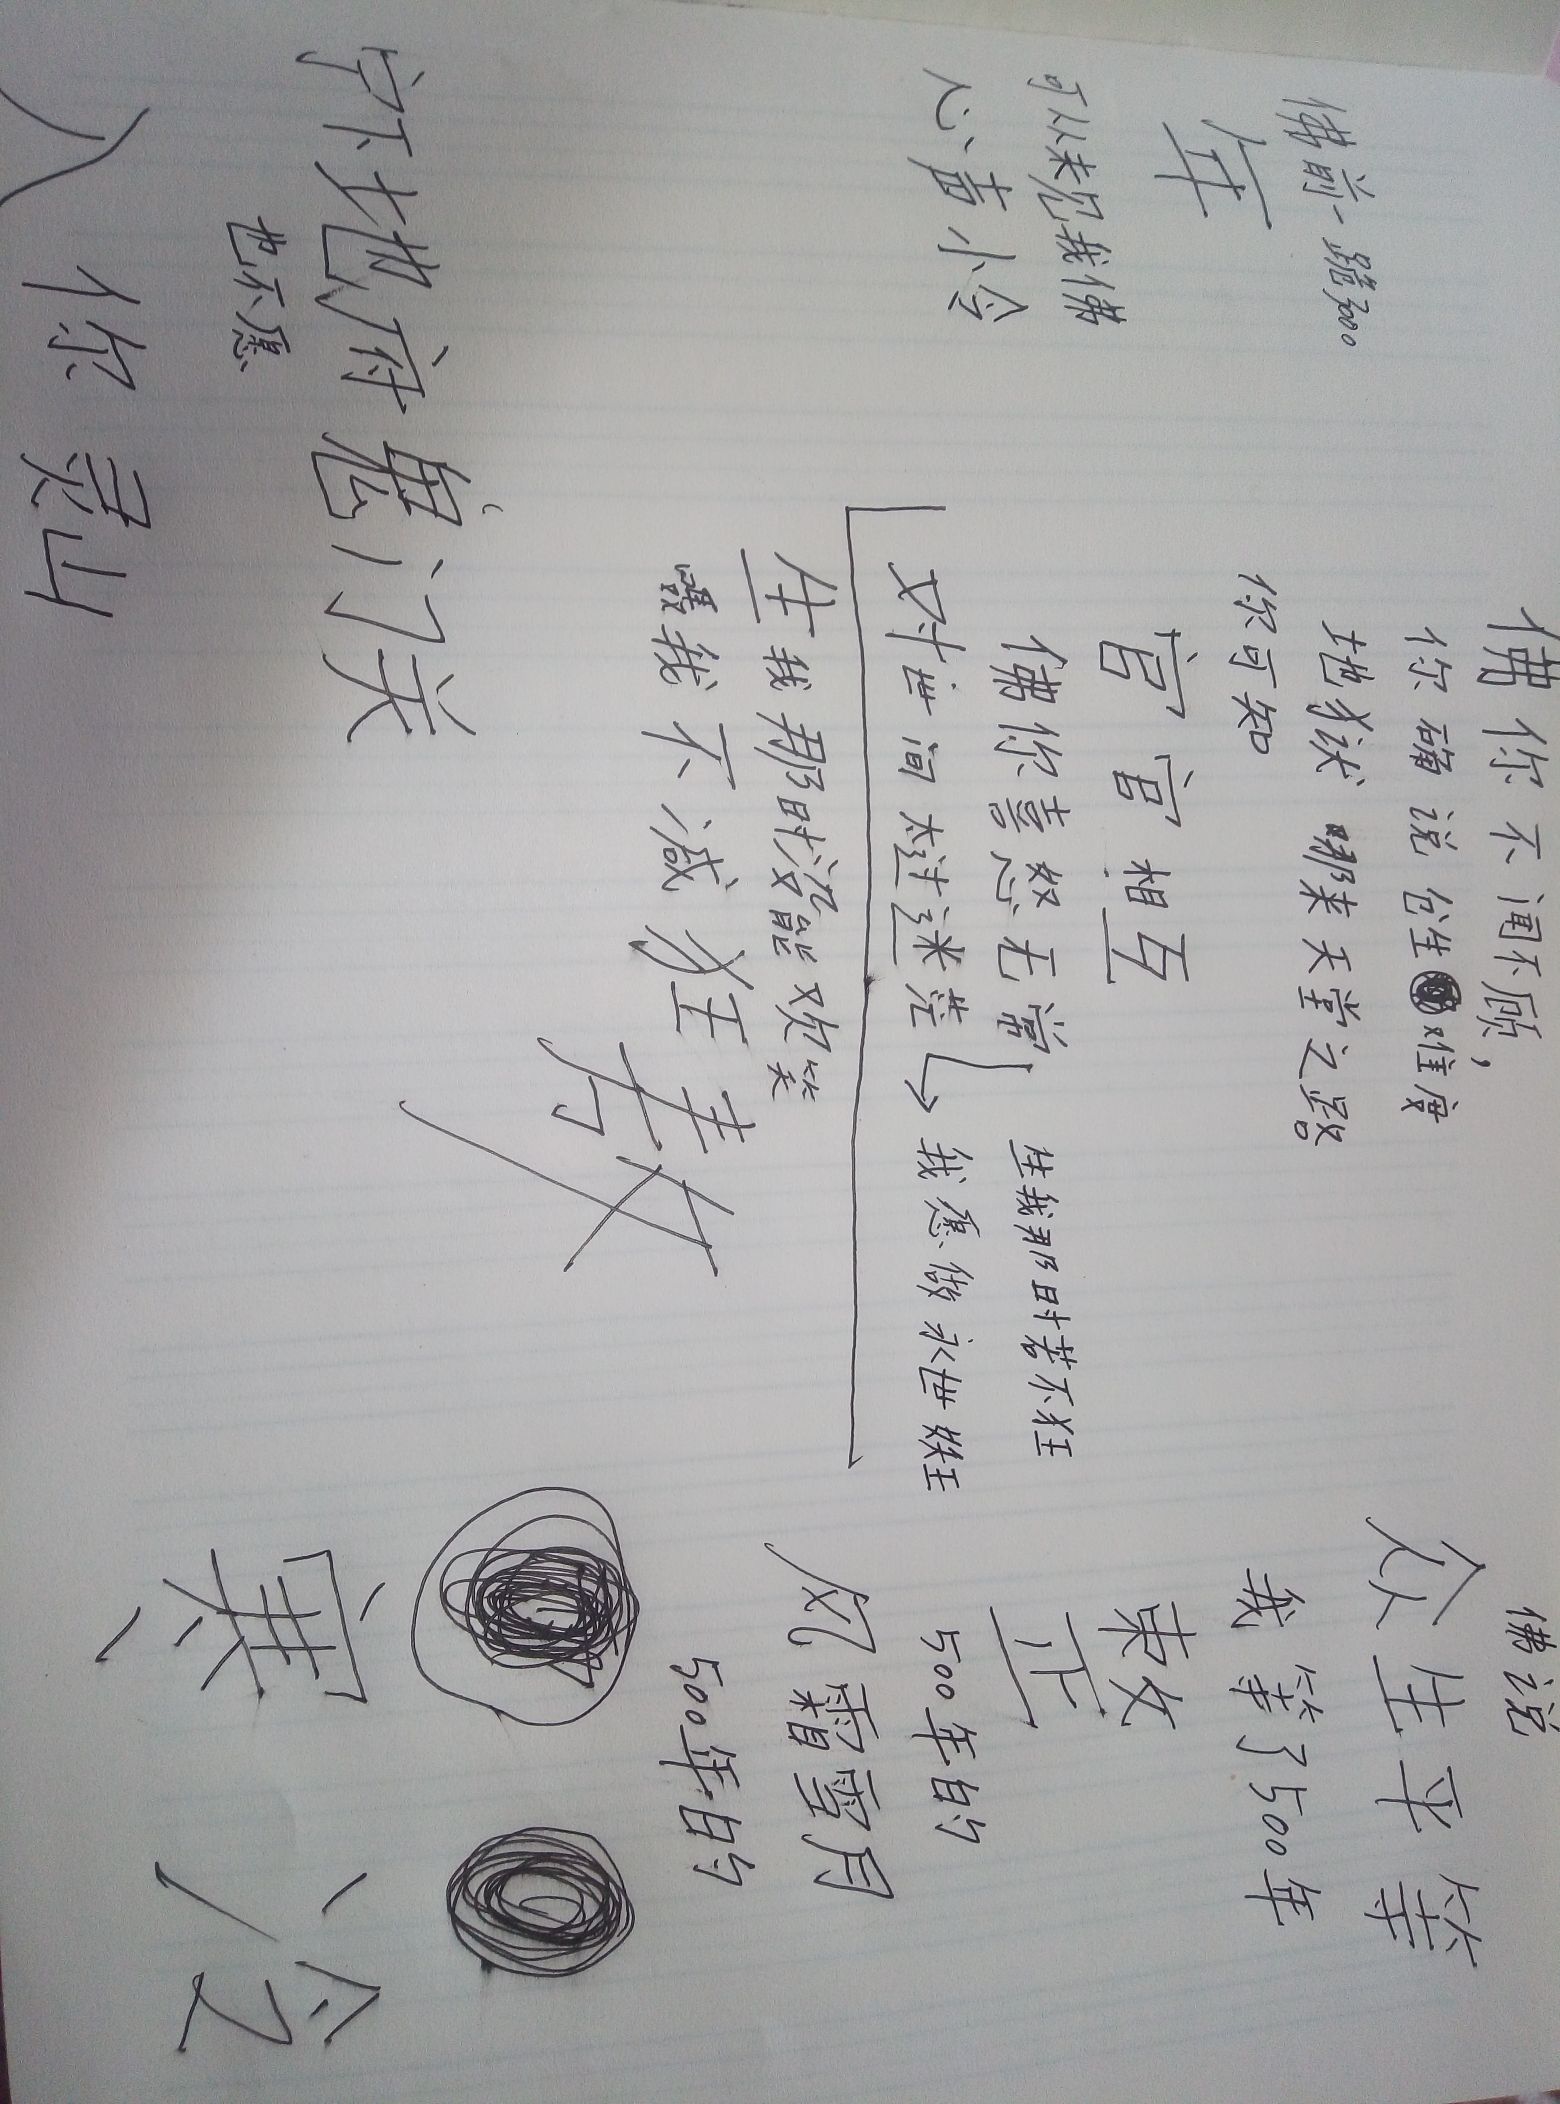 佛前一跪3000
年
可从未见我佛
心 怜
宁下地府鬼门关
也不愿
入你灵山
佛你不闻不顾，
你确说仓生难度
地狱 哪来天堂之毁。
你可知
官官相互
佛你喜怒无常
对世间太过迷茫
生我那时若不狂
我愿做永世妖王
生我那时没能欢笑
毁我不减狂
佛说
众生平等
我等了500年
整
500年的
风霜雪月
500年的